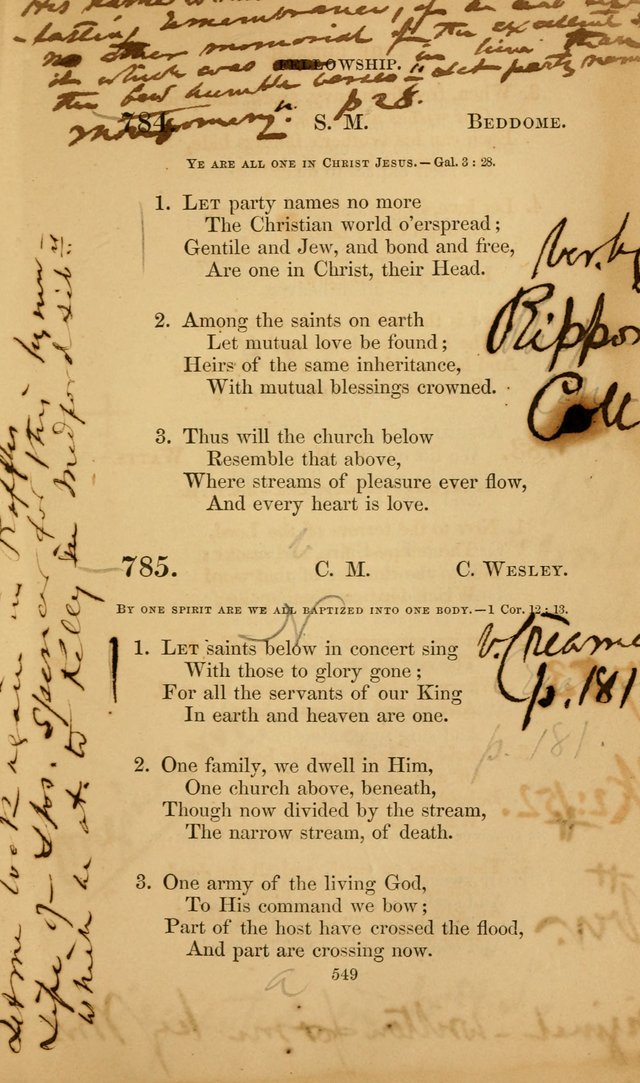 His name
-lasting remembrance, if he had
no other memorial of the excellent
it which was in him than
the few humble verses "Let party names
FELLOWSHIP.
Montgomery". p 28.
784. S. M. BEDDOME.
YE ARE ALL ONE IN CHRIST JESUS. — Gal. 3 : 28.
1. LET party names no more
The Christian world o'erspread;
Gentile and Jew, and bond and free,
Are one in Christ, their Head.
2. Among the saints on earth
Let mutual love be found;
Heirs of the same inheritance,
With mutual blessings crowned.
3. Thus will the church below
Resemble that above,
Where streams of pleasure ever flow,
And every heart is love.
Ver. by
Rippon
Coll
785. C. M. C. WESLEY.
BY ONE SPIRIT ARE WE ALL BAPTIZED INTO ONE BODY.—1 Cor. 12 : 13.
1. LET saints below in concert sing
With those to glory gone;
For all the servants of our King
In earth and heaven are one.
2. One family, we dwell in Him,
One church above, beneath,
Though now divided by the stream,
The narrow stream, of death.
3. One army of the living God,
To His command we bow;
Part of the host have crossed the flood,
And part are crossing now.
v. Creamer
p. 181
p. 181.
549
a
Let me look again in Raffles'
Life of Thos. Spencer for this hymn
which he at. to Kelly in Medford Lib.